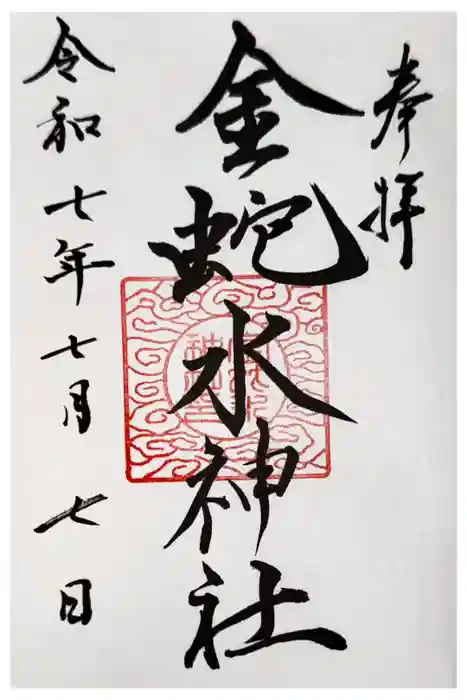 奉拝
金蛇水神社
令和七年七月七日